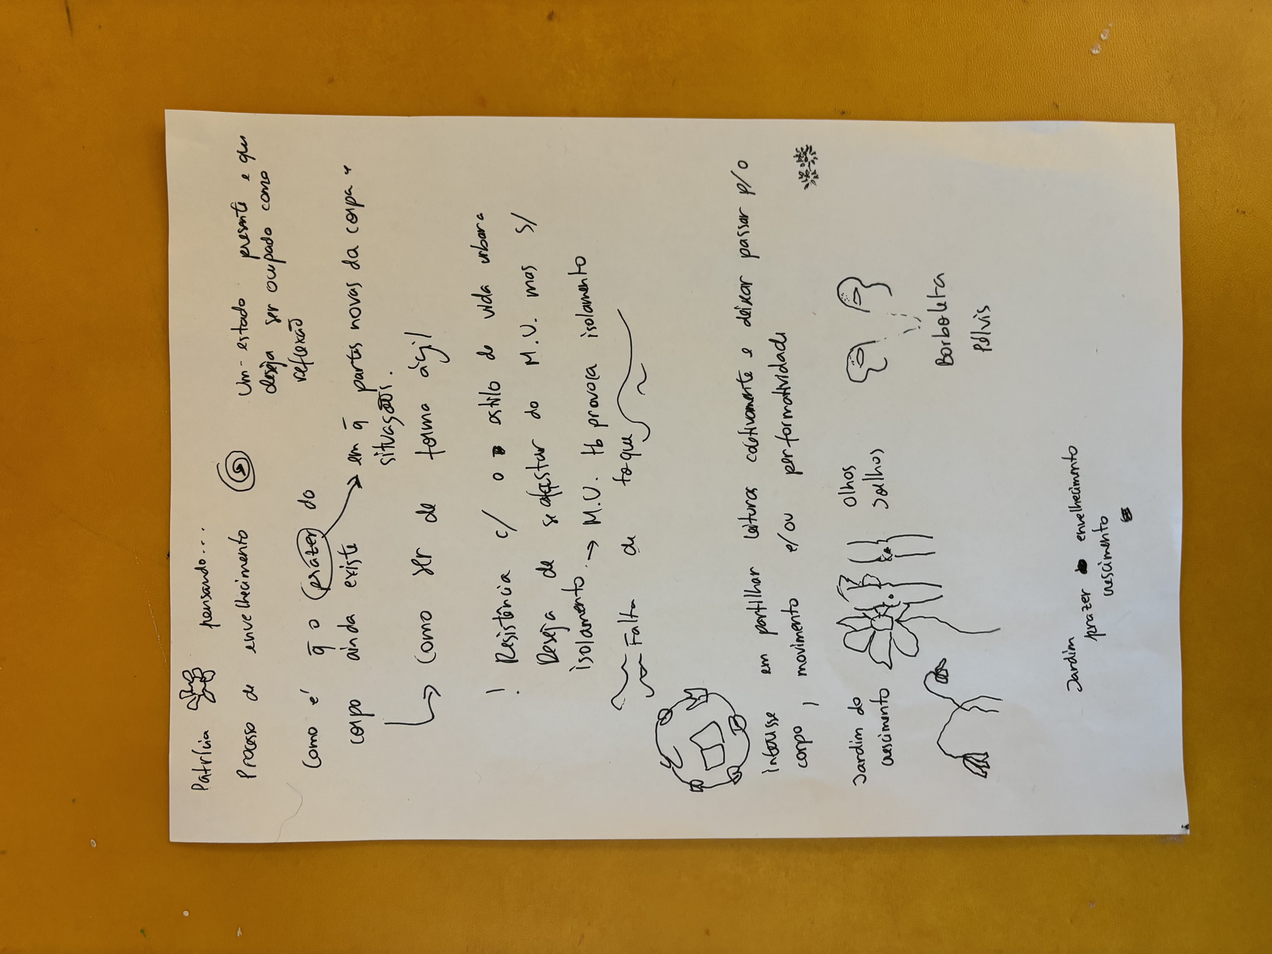 Patrícia pensando...
Processo de envelhecimento
Um estado presente e que
deseja ser ocupado como
reflexão
Como é q̄ o prazer do
corpo ainda existe em q̄ partes novas da corpa e
situações.
Como ser de forma ágil
! Resistência c/ o estilo de vida urbana
Deseja de se afastar do M.U. mas s/
isolamento → M.U. tb provoca isolamento
Falta de toque
Intersse em partilhar leituras coletivamente e deixar passar p/o
corpo, movimento e/ou performatividade
Jardim do
crescimento
Olhos
Joelhos
Borboleta
Pélvis
Jardim
prazer envelhecimento
crescimento